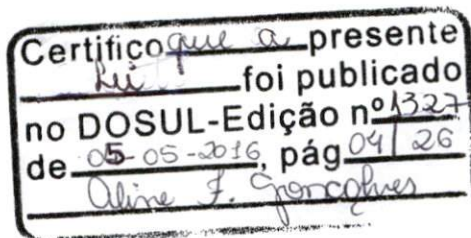 Certifico que a presente
Lei foi publicado
no DOSUL-Edição nº 1327
de 05-05-2016, pág 04/26
Aline F. Gonçalves